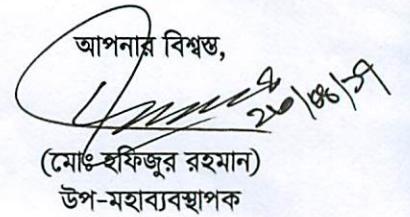 আপনার বিশ্বস্ত,
(মোঃ হফিজুর রহমান)
উপ-মহাব্যবস্থাপক